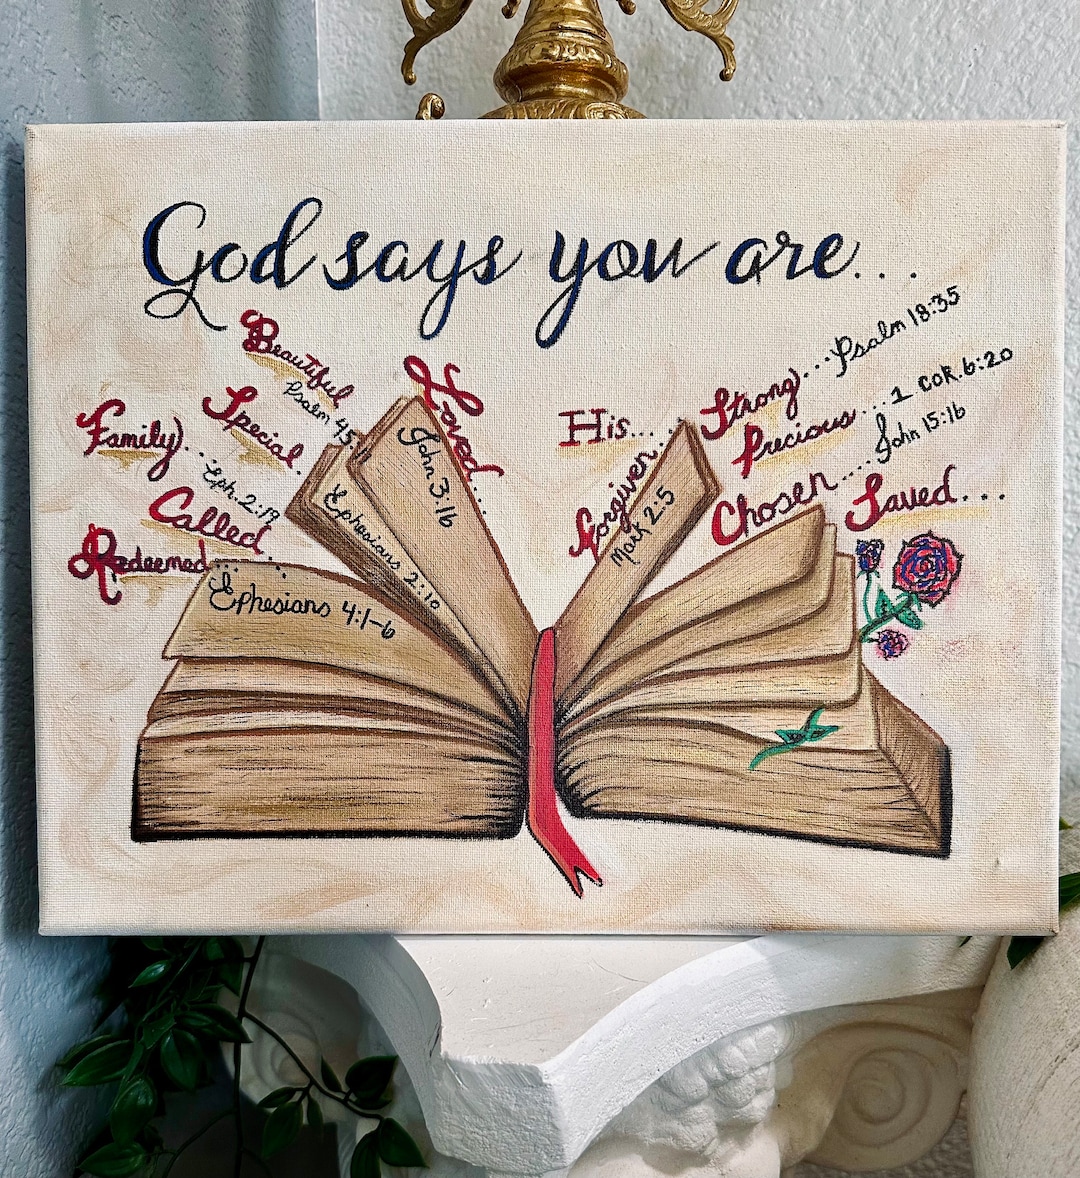 God says you are...
Beautiful
Psalm 45
Loved...
Special...
Ephesians 2:10
John 3:16
Family...
Eph. 2:19
Called...
Ephesians 4:1-6
Redeemed...
His....
Forgiven...
Mark 2:5
Strong...Psalm 18:35
Precious...1 COR. 6:20
Chosen....John 15:16
Saved...